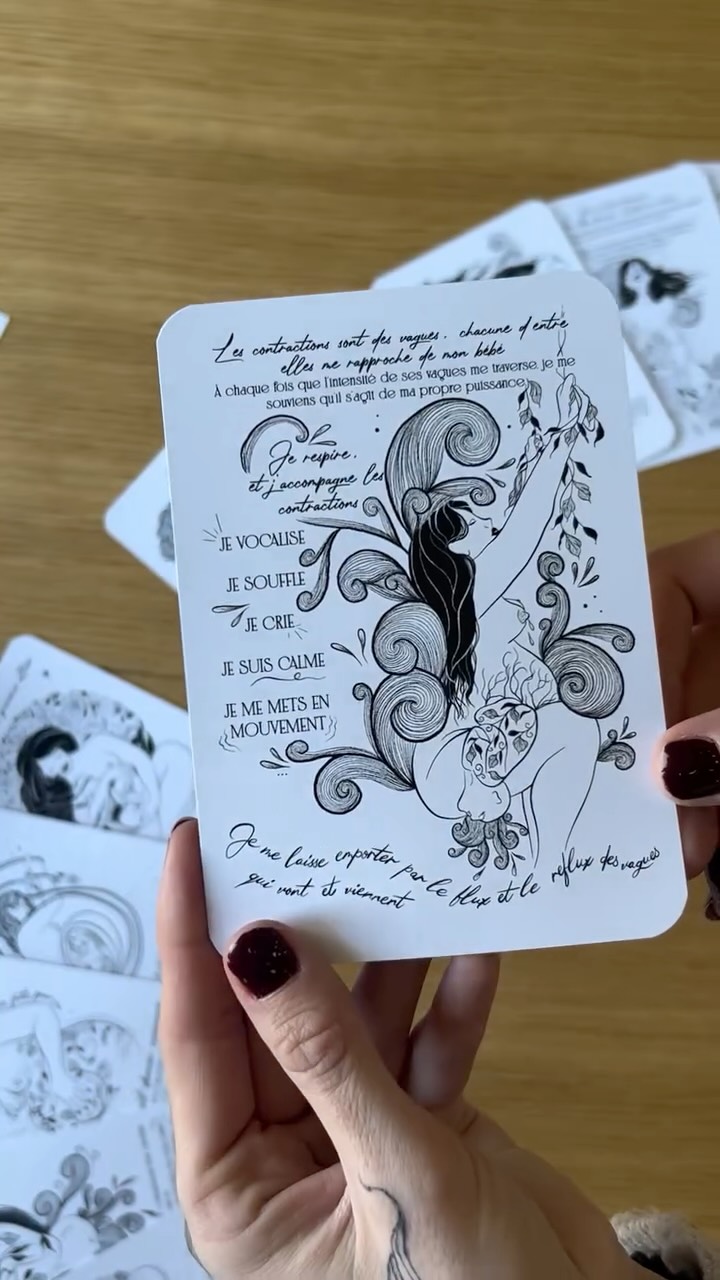 Les contractions sont des vagues, chacune d'entre
elles me rapproche de mon bébé
À chaque fois que l'intensité de ses vagues me traverse, je me
souviens qu'il s'agit de ma propre puissance,
Je respire,
et j'accompagne les
contractions
JE VOCALISE
JE SOUFFLE
JE CRIE
JE SUIS CALME
JE ME METS EN
MOUVEMENT
Je me laisse emporter par le flux et le reflux des vagues
qui vont et viennent